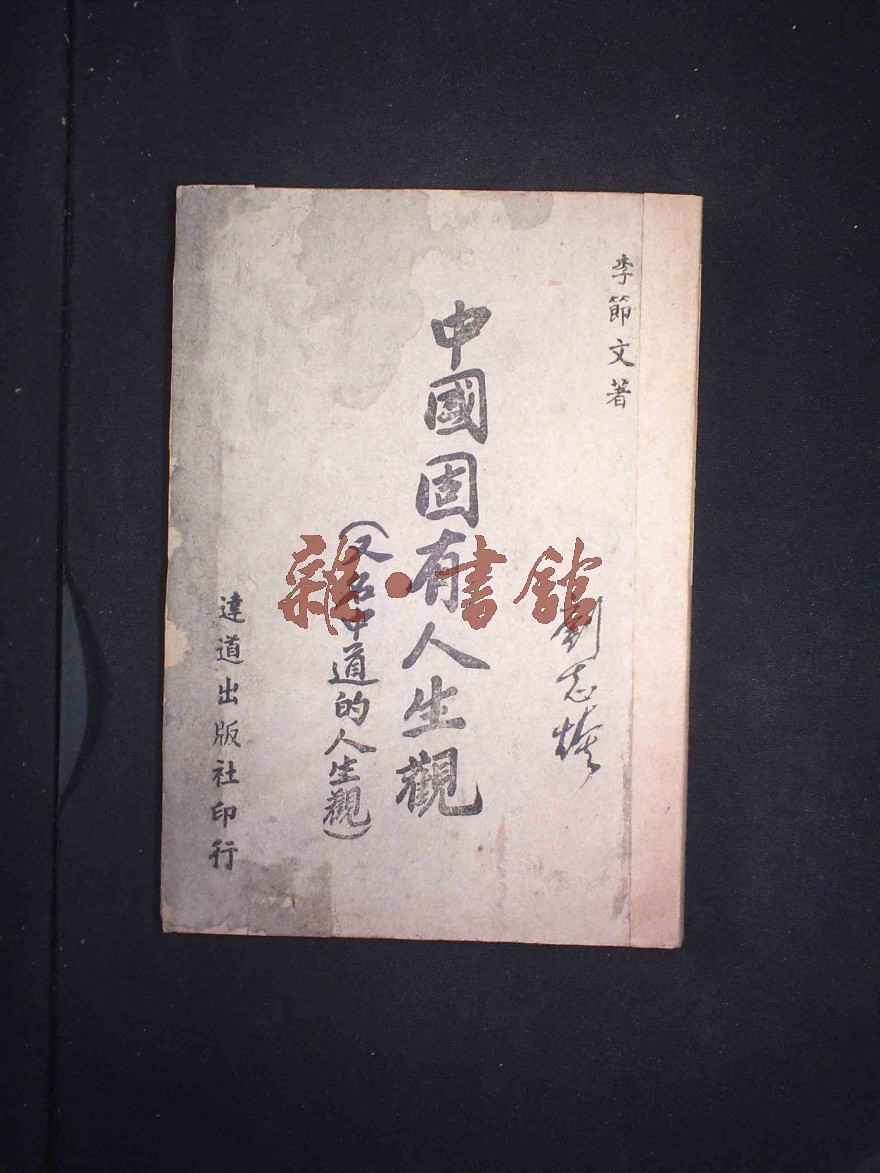 李節文著
中國固有人生觀
(又名中道的人生觀)
達道出版社印行
雜·書館
劉志